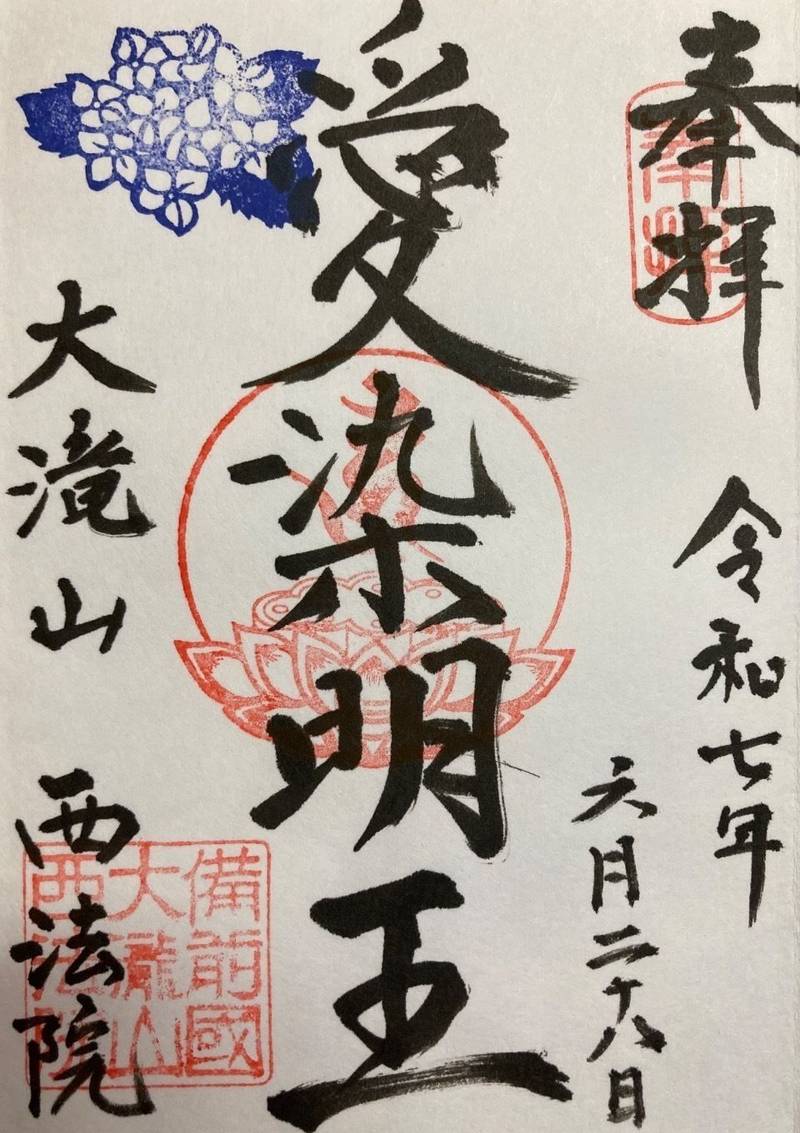 奉拝
奉拝
令和七年
六月二十八日
愛染明王
大滝山
西法院
備前國
大瀧山
西法院